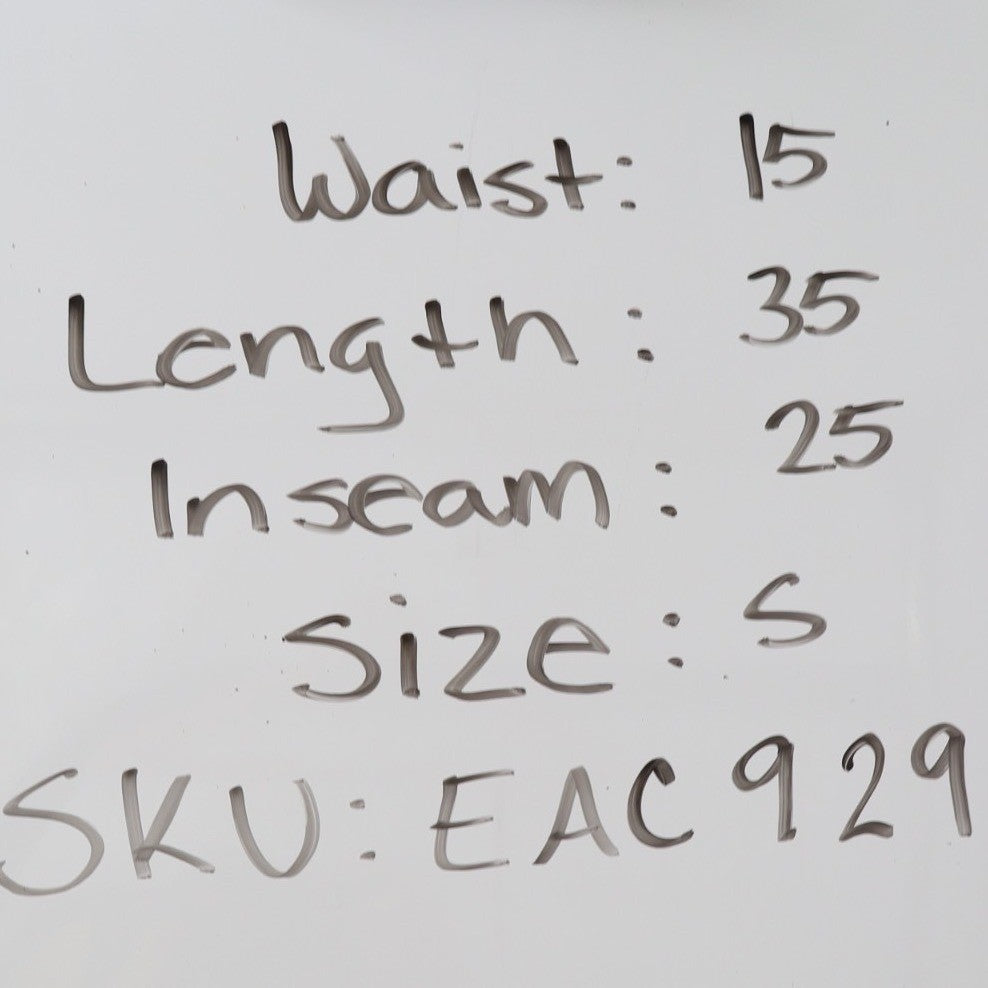 Waist: 15
Length: 35
Inseam: 25
Size: S
SKU: EAC 929